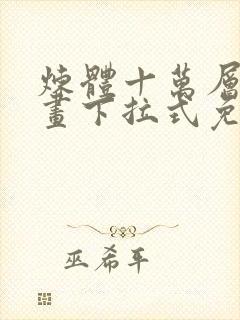 煉體十萬層
畫下拉式免
巫希平